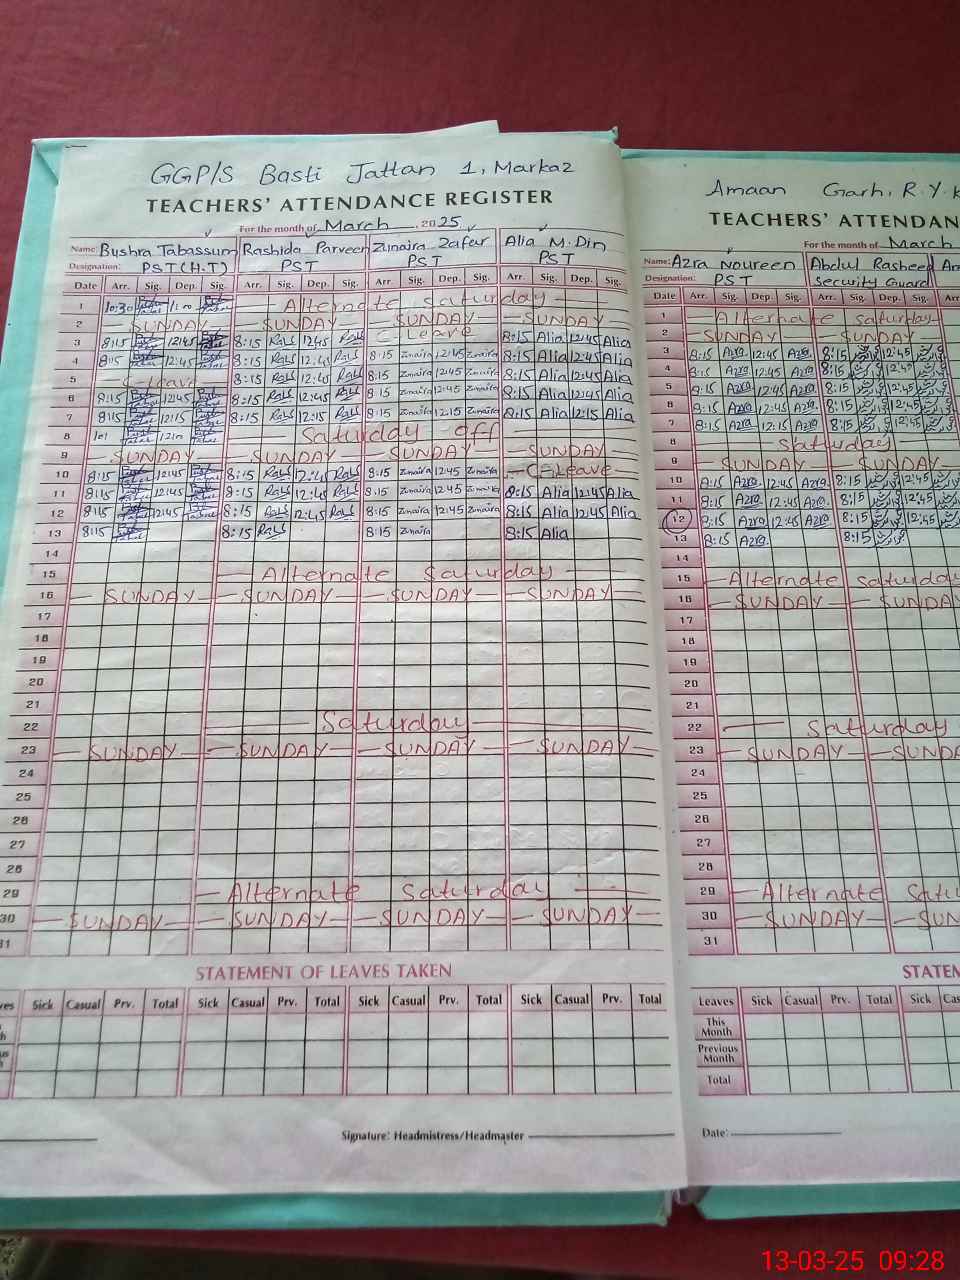 GGP/S Basti Jattan 1, Markaz
TEACHERS' ATTENDANCE REGISTER
For the month of March 2025
Name: Bushra Tabassum Rashida Parveen Zunaira Zafar Alia M.Din
Designation: PST(H.T) PST PST PST
Date Arr. Sig. Dep. Sig. Arr. Sig. Dep. Sig. Arr. Sig. Dep. Sig. Arr. Sig. Dep. Sig.
1 10:30 1:00 Alternate Saturday
2 SUNDAY SUNDAY SUNDAY SUNDAY
3 8:15 12:45 8:15 12:45 C-Leave 8:15 Alia 12:45 Alia
4 8:15 12:45 8:15 12:45 8:15 Zunaira 12:45 Zunaira 8:15 Alia 12:45 Alia
5 C-Leave 8:15 12:45 8:15 Zunaira 12:45 Zunaira 8:15 Alia 12:45 Alia
6 8:15 12:45 8:15 12:45 8:15 Zunaira 12:45 Zunaira 8:15 Alia 12:45 Alia
7 8:15 12:15 8:15 12:15 8:15 Zunaira 12:15 Zunaira 8:15 Alia 12:15 Alia
8 Saturday off
9 SUNDAY SUNDAY SUNDAY SUNDAY
10 8:15 12:45 8:15 12:45 8:15 Zunaira 12:45 Zunaira C-Leave
11 8:15 12:45 8:15 12:45 8:15 Zunaira 12:45 Zunaira 8:15 Alia 12:45 Alia
12 8:15 12:45 8:15 12:45 8:15 Zunaira 12:45 Zunaira 8:15 Alia 12:45 Alia
13 8:15 8:15 8:15 Zunaira 8:15 Alia
14
15 Alternate Saturday
16 SUNDAY SUNDAY SUNDAY SUNDAY
17
18
19
20
21
22 Saturday
23 SUNDAY SUNDAY SUNDAY SUNDAY
24
25
26
27
28
29 Alternate Saturday
30 SUNDAY SUNDAY SUNDAY SUNDAY
31
STATEMENT OF LEAVES TAKEN
Sick Casual Prv. Total Sick Casual Prv. Total Sick Casual Prv. Total Sick Casual Prv. Total
Signature: Headmistress/Headmaster
Amaan Garh, R.Y.K
TEACHERS' ATTENDAN
For the month of March
Name: Azra Noureen Abdul Rasheed
Designation: PST Security Guard
Date Arr. Sig. Dep. Sig. Arr. Sig. Dep. Sig.
1 Alternate Saturday
2 SUNDAY SUNDAY
3 8:15 Azra 12:45 Azra 8:15 12:45
4 8:15 Azra 12:45 Azra 8:15 12:45
5 8:15 Azra 12:45 Azra 8:15 12:45
6 8:15 Azra 12:45 Azra 8:15 12:45
7 8:15 Azra 12:15 Azra 8:15 12:15
8 Saturday
9 SUNDAY SUNDAY
10 8:15 Azra 12:45 Azra 8:15 12:45
11 8:15 Azra 12:45 Azra 8:15 12:45
12 8:15 Azra 12:45 Azra 8:15 12:45
13 8:15 Azra 8:15
14
15 Alternate Saturday
16 SUNDAY SUNDAY
17
18
19
20
21
22 Saturday
23 SUNDAY
24
25
26
27
28
29 Alternate
30 SUNDAY
31
STATEM
Leaves Sick Casual Prv. Total Sick
This Month
Previous Month
Total
Date:
13-03-25 09:28